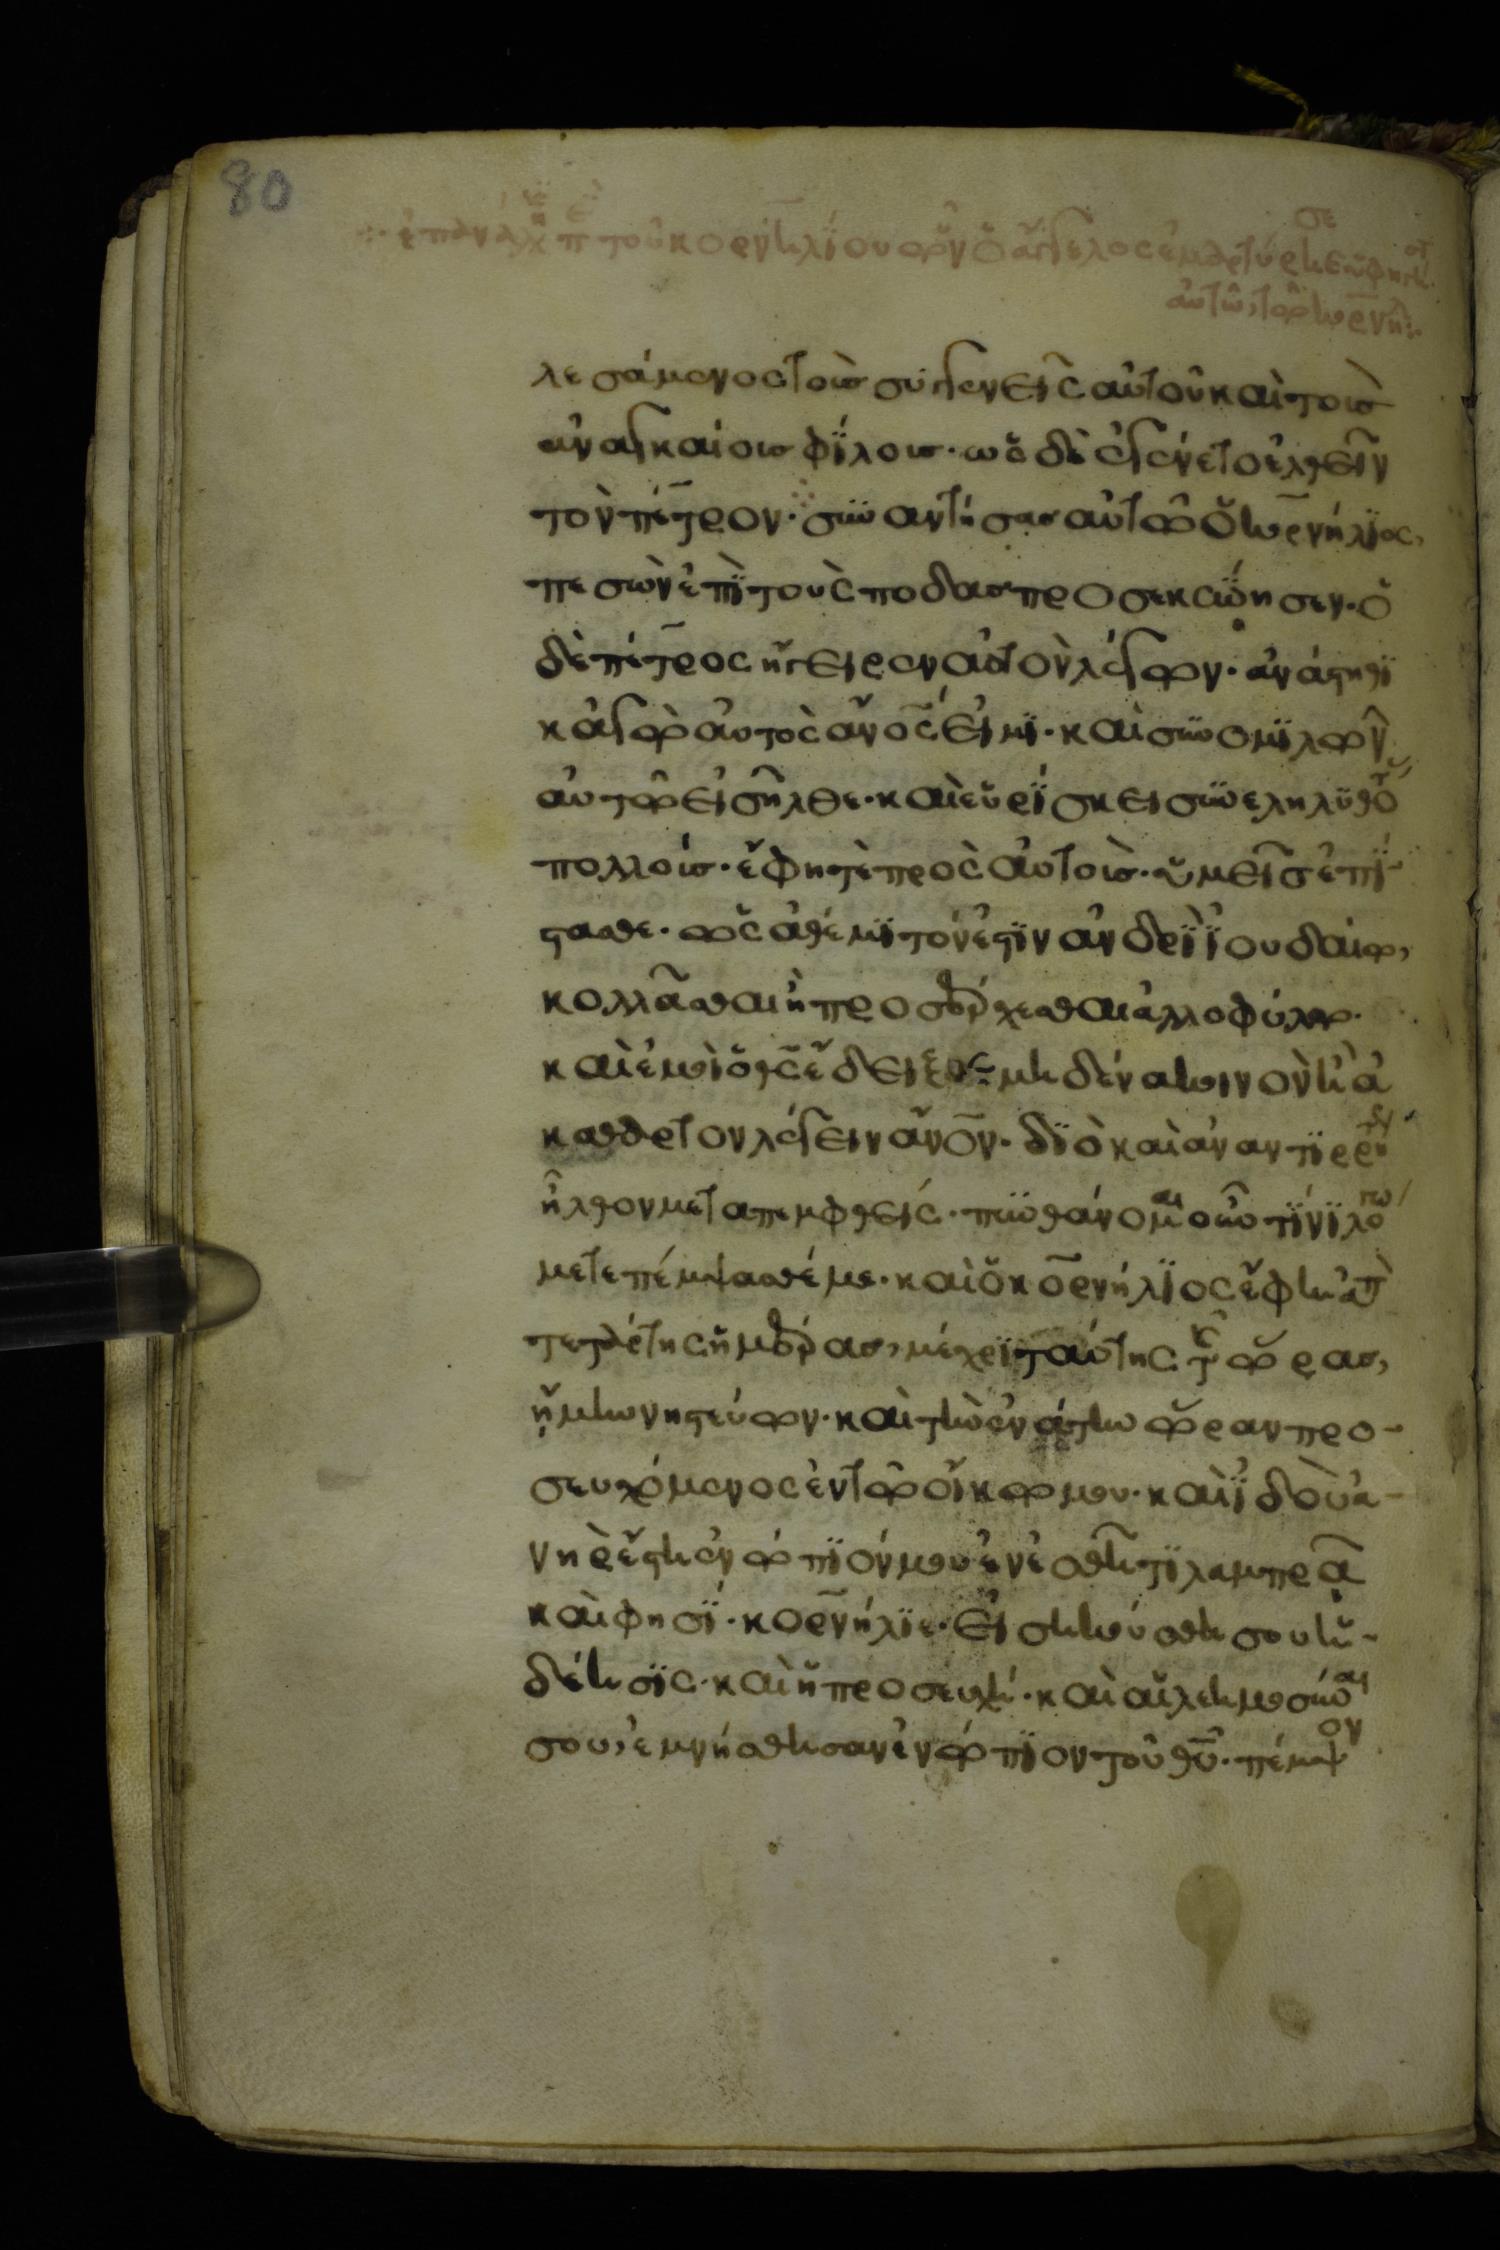 80
λεσάμενος τοὺς συγγενεῖς αὐτοῦ καὶ τοὺς
ἀναγκαίους φίλους· ὡς δὲ ἐγένετο ἐλθεῖν
τὸν πέτρον· συναντήσας αὐτῷ ὁ κορνήλϊος,
πεσὼν ἐπῒ τοὺς πόδας προσεκύνησεν· ὁ
δὲ πέτρος ἤγειρεν αὐτὸν λέγων· ἀνάστηθϊ
κἀγὼ αὐτὸς ἄνος εἰμϊ· καὶ συνομϊλῶν
αὐτῷ εἰσῆλθε· καὶ εὑρΐσκει συνεληλϋθό
πολλούς· ἔφη τὲ πρὸς αὐτούς· ὑμεῖς ἐπΐ-
στασθε· ὡς ἀθέμϊτόν ἐστϊν ἀνδρῒ ἰουδαίω,
κολλᾶσθαι ἢ προσέρχεσθαι ἀλλοφύλω·
καὶ ἐμοὶ ὁ θς ἔδειξεν μηδένα κοινὸν ἢ ἀ
κάθαρτον λέγειν ἄνον· δϊὸ καὶ ἀναντϊρρή
ἦλθον μεταπεμφθείς· πυνθάνομαι οὖν τΐνϊ λό
μετεπέμψασθέ με· καὶ ὁ κορνήλϊος ἔφη ἀπὸ
τετάρτης ἡμέρας, μέχρϊ ταύτης τῆς ὥρας,
ἤμην νηστεύων· καὶ τὴν ἐνάτην ὥραν προ-
σευχόμενος ἐν τῷ οἴκω μου· καὶ ἰδοὺ ἀ-
νὴρ ἔστη ἐνώπϊόν μου ἐν ἐσθῆτϊ λαμπρᾷ
καὶ φησΐ· κορνήλϊε· εἰσηκούσθη σου ἡ
δέησϊς· καὶ ἡ προσευχή· καὶ αἱ ἐλεημοσύναι
σου, ἐμνήσθησαν ἐνώπϊον τοῦ θυ· πέμψον